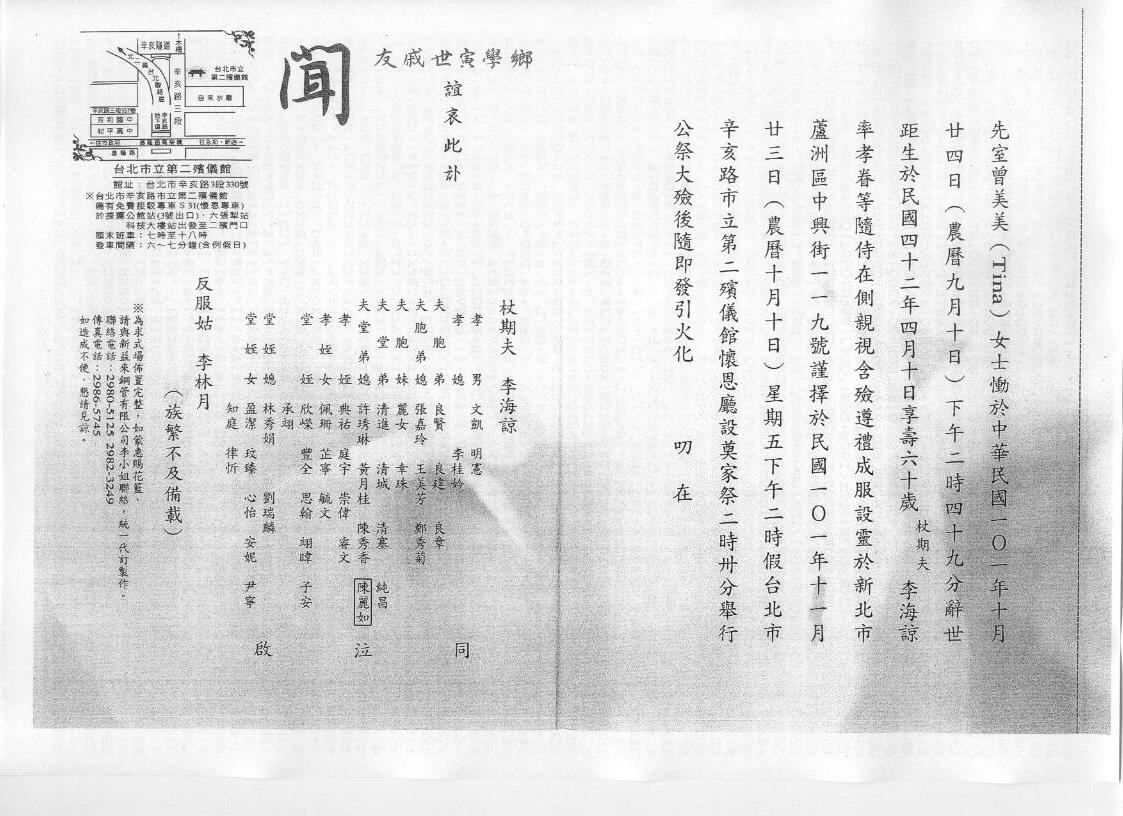 先室曾美美（Tina）女士慟於中華民國一〇一年十月
廿四日（農曆九月十日）下午二時四十九分辭世
距生於民國四十二年四月十日享壽六十歲 杖期夫 李海諒
率孝眷等隨侍在側親視含殮遵禮成服設靈於新北市
蘆洲區中興街一一九號謹擇於民國一〇一年十一月
廿三日（農曆十月十日）星期五下午二時假台北市
辛亥路市立第二殯儀館懷恩廳設奠家祭二時卅分舉行
公祭大殮後隨即發引火化 叨在
鄉學寅世戚友
誼哀此訃
聞
杖期夫 李海諒
孝男 文凱 明憲
孝媳 李桂姈
夫胞弟 良賢 良建 良章
夫胞弟媳 張嘉玲 王美芳 鄭秀菊
夫胞妹 麗女 幸珠
夫堂弟 清進 清城 清寨 純昌
夫堂弟媳 許琇琳 黃月桂 陳秀香 陳麗如
孝姪 典祐 庭宇 崇偉 睿文
孝姪女 佩珊 芷寧 毓文
堂姪 欣嶸 豐全 思翰 翊暐 子安
承翊
堂姪媳 林秀娟 劉瑞麟
堂姪女 盈潔 玟臻 心怡 安妮 尹寧
知庭 律忻
同
泣
啟
反服姑 李林月
（族繁不及備載）
※為求式場佈置完整，如蒙惠賜花籃，
請與新益來鋼管有限公司李小姐聯絡，統一代訂製作。
聯絡電話：2980-5125 2982-3249
傳真電話：2986-5745
如造成不便，懇請見諒。
辛亥隧道
木柵
北二高
台北聯絡道
辛亥路三段
台北市立
第二殯儀館
自來水廠
辛亥路三段157巷
芳和國中
和平高中
往市政府
基隆路高架橋
往永和、新店
基隆路
台北市立第二殯儀館
館址：台北市辛亥路3段330號
※台北市辛亥路市立第二殯儀館
備有免費接駁專車S31(懷恩專車)
於捷運公館站(3號出口)、六張犁站
科技大樓站出發至二殯門口
頭末班車：七時至十八時
發車間隔：六～七分鐘(含例假日)